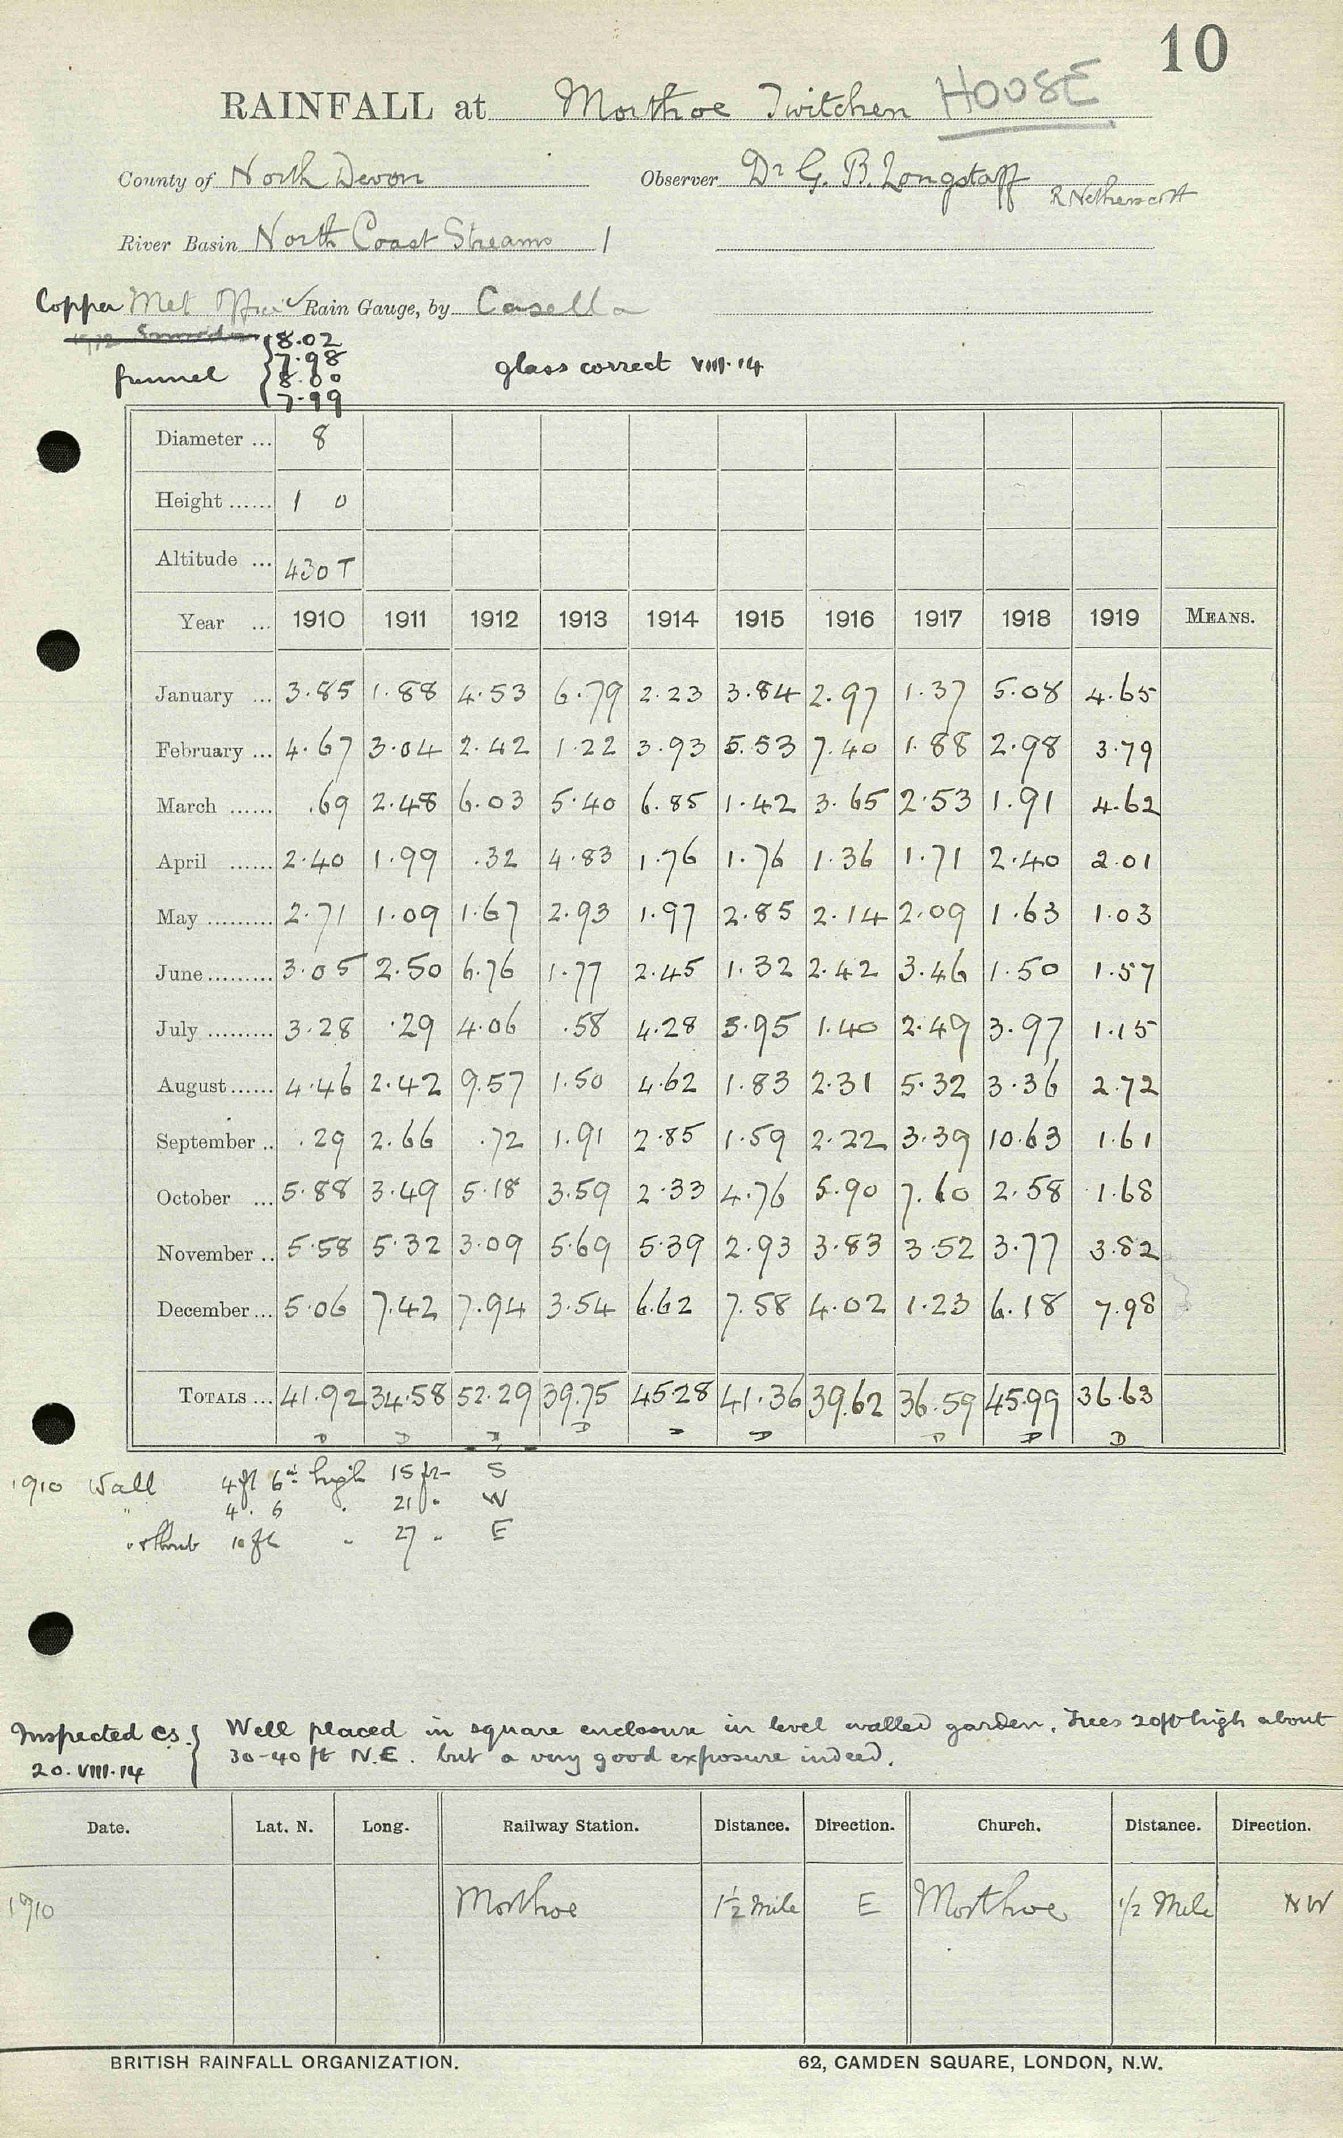 10
RAINFALL at Morthoe Twitchen HOUSE
County of North Devon Observer Dr G. B. Longstaff
River Basin North Coast Streams 1
Copper Met Office Rain Gauge, by Casella
funnel { 8.02
7.98
8.00
7.99
glass correct VIII.14
Diameter ... 8
Height ...... 1 0
Altitude ... 430 T
Year ... 1910 1911 1912 1913 1914 1915 1916 1917 1918 1919 MEANS.
January ... 3.85 1.88 4.53 6.79 2.23 3.84 2.97 1.37 5.08 4.65
February ... 4.67 3.04 2.42 1.22 3.93 5.53 7.40 1.88 2.98 3.79
March ...... .69 2.48 6.03 5.40 6.85 1.42 3.65 2.53 1.91 4.62
April ...... 2.40 1.99 .32 4.83 1.76 1.76 1.36 1.71 2.40 2.01
May ......... 2.71 1.09 1.67 2.93 1.97 2.85 2.14 2.09 1.63 1.03
June ......... 3.05 2.50 6.76 1.77 2.45 1.32 2.42 3.46 1.50 1.57
July ......... 3.28 .29 4.06 .58 4.28 5.95 1.40 2.49 3.97 1.15
August ...... 4.46 2.42 9.57 1.50 4.62 1.83 2.31 5.32 3.36 2.72
September .. .29 2.66 .72 1.91 2.85 1.59 2.22 3.39 10.63 1.61
October ... 5.88 3.49 5.18 3.59 2.33 4.76 5.90 7.60 2.58 1.68
November .. 5.58 5.32 3.09 5.69 5.39 2.93 3.83 3.52 3.77 3.82
December ... 5.06 7.42 7.94 3.54 6.62 7.58 4.02 1.23 6.18 7.98
TOTALS ... 41.92 34.58 52.29 39.75 45.28 41.36 39.62 36.59 45.99 36.63
D D D D D D D D D
1910 Wall 4ft 6in high 15 ft S
" 4. 6 " 21 " W
" & shrub 10 ft " 27 " E
Inspected C.S. } Well placed in square enclosure in level walled garden. Trees 20ft high about
20.VIII.14 30-40 ft N.E. but a very good exposure indeed.
Date. Lat. N. Long. Railway Station. Distance. Direction. Church. Distance. Direction.
1910 Morthoe 1½ Mile E Morthoe 1/2 Mile NW
BRITISH RAINFALL ORGANIZATION. 62, CAMDEN SQUARE, LONDON, N.W.